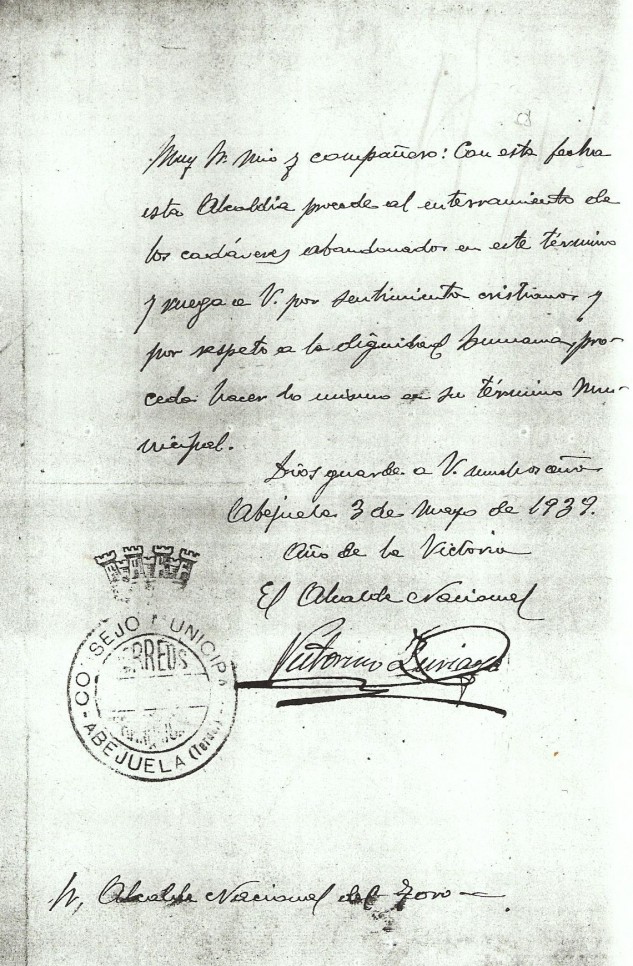 Muy Sr. mio y compañero: Con esta fecha
esta Alcaldia procede al enterramiento de
los cadáveres abandonados en este término
y ruega a V. por sentimientos cristianos y
por respeto a la dignidad humana, pro-
ceda hacer lo mismo en su término Mu-
nicipal.
Dios guarde a V. muchos años
Abejuela 3 de Mayo de 1939.
Año de la Victoria
El Alcalde Nacional
Victorino
CONSEJO MUNICIPA
CORREOS
ABEJUELA (Teruel)
Sr. Alcalde Nacional del Toro